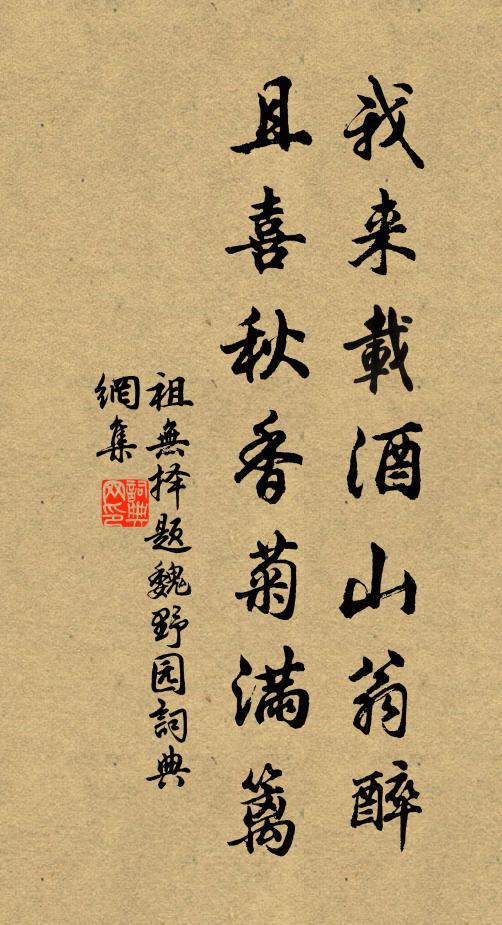 我来載酒山翁醉
且喜秋香菊满篱
祖無择题魏野园詞典
網集
詞典
网印